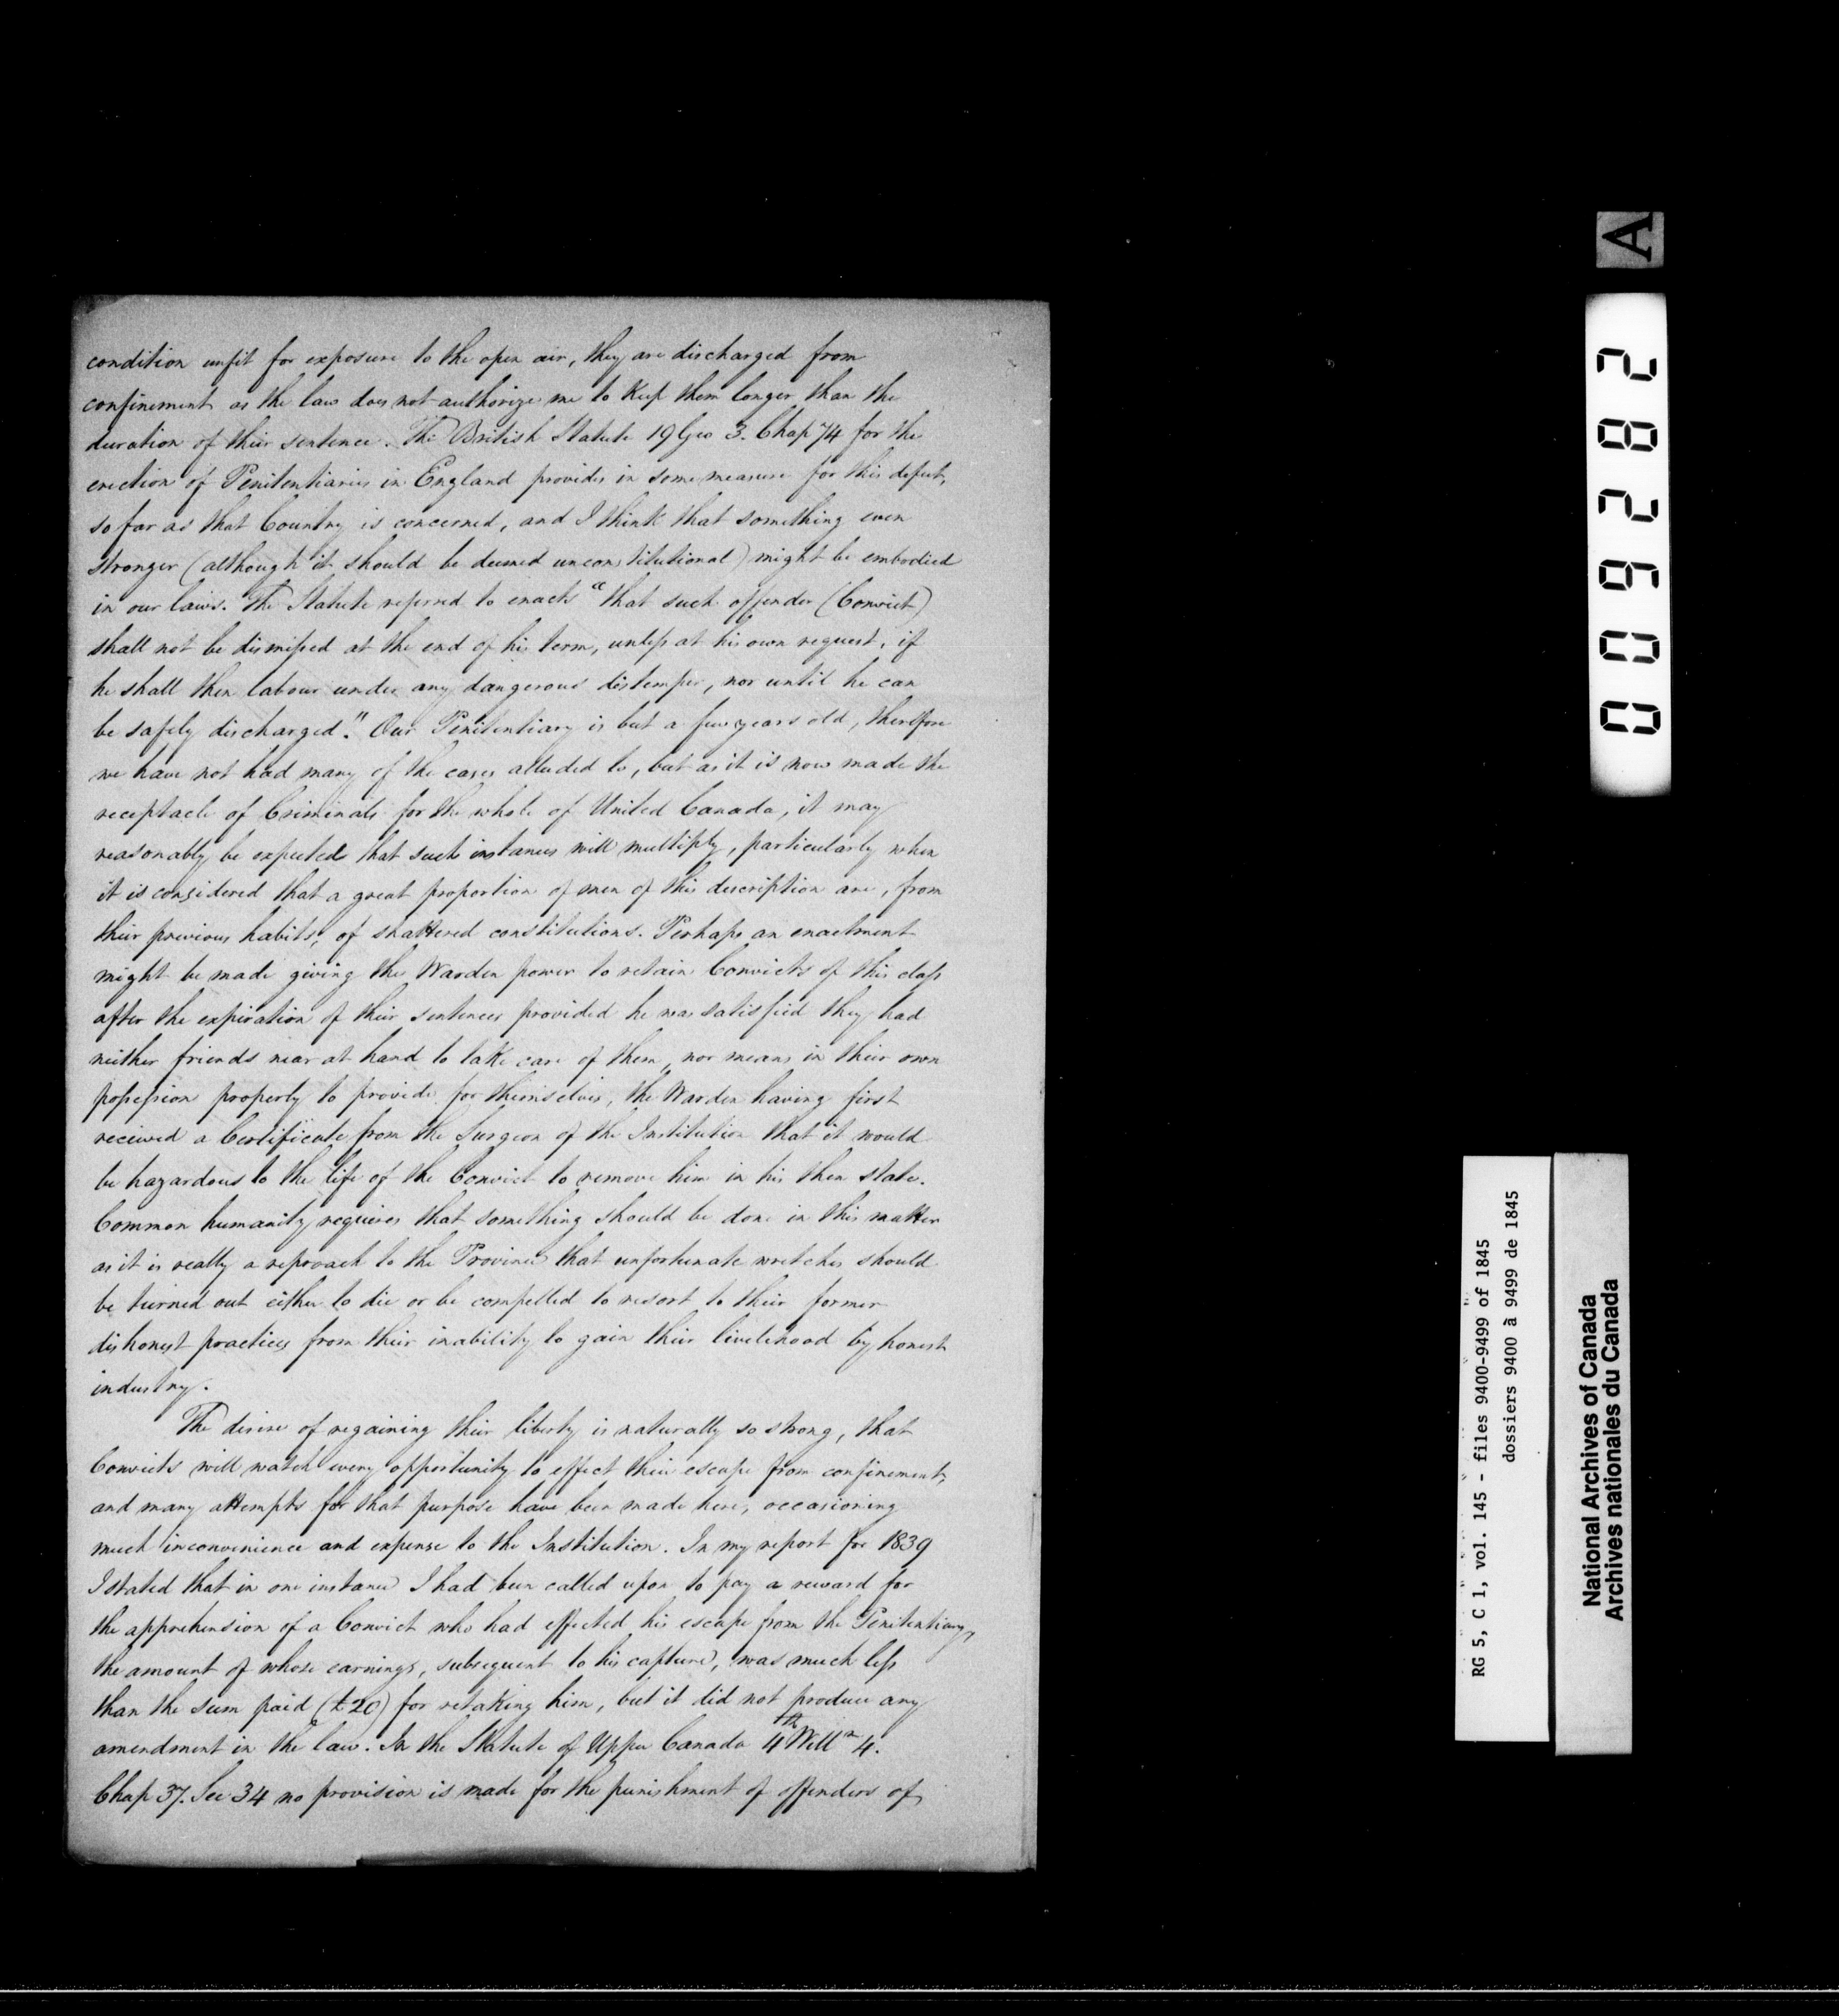 condition unfit for exposure to the open air, they are discharged from
confinement as the law does not authorize me to keep them longer than the
duration of their sentence. The British Statute 19 Geo 3. Chap 74 for the
erection of Penitentiaries in England provides in some measure for this defect,
so far as that Country is concerned, and I think that something even
stronger (although it should be deemed unconstitutional) might be embodied
in our laws. The Statute referred to enacts "that such offender (Convict)
shall not be dismissed at the end of his term, unless at his own request, if
he shall then labour under any dangerous distemper, nor until he can
be safely discharged." Our Penitentiary is but a few years old, therefore
we have not had many of the cases alluded to, but as it is now made the
receptacle of Criminals for the whole of United Canada, it may
reasonably be expected that such instances will multiply, particularly when
it is considered that a great proportion of men of this description are, from
their previous habits, of shattered constitutions. Perhaps an enactment
might be made giving the Warden power to retain Convicts of this class
after the expiration of their sentences provided he was satisfied they had
neither friends near at hand to take care of them, nor means in their own
possession properly to provide for themselves, the Warden having first
received a Certificate from the Surgeon of the Institution that it would
be hazardous to the life of the Convict to remove him in his then state.
Common humanity requires that something should be done in this matter
as it is really a reproach to the Province that unfortunate wretches should
be turned out either to die or be compelled to resort to their former
dishonest practices from their inability to gain their livelihood by honest
industry.
The desire of regaining their liberty is naturally so strong, that
Convicts will watch every opportunity to effect their escape from confinement,
and many attempts for that purpose have been made here, occasioning
much inconvenience and expense to the Institution. In my report for 1839
I stated that in one instance I had been called upon to pay a reward for
the apprehension of a Convict who had effected his escape from the Penitentiary,
the amount of whose earnings, subsequent to his capture, was much less
than the sum paid (£20) for retaking him, but it did not produce any
amendment in the law. In the Statute of Upper Canada 4th Willm 4.
Chap 37. Sec 34 no provision is made for the punishment of offenders of
A
002826
RG 5, C 1, vol. 145 - files 9400-9499 of 1845
dossiers 9400 à 9499 de 1845
National Archives of Canada
Archives nationales du Canada